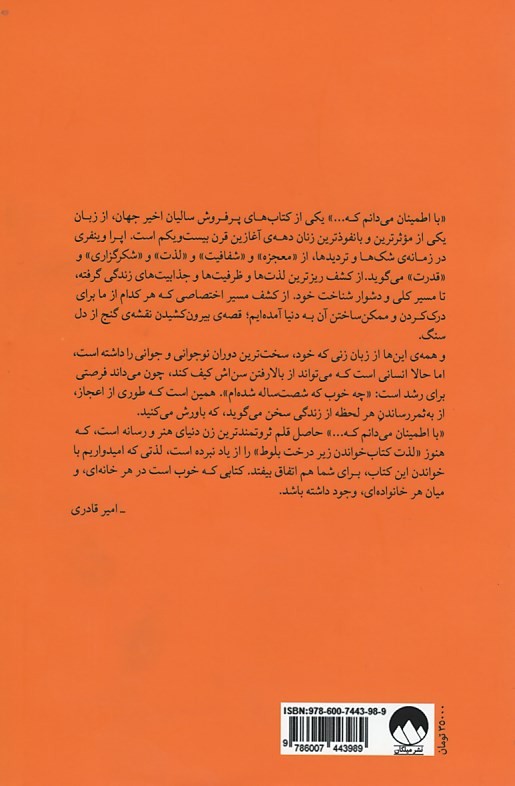 «با اطمینان می‌دانم که...» یکی از کتاب‌های پرفروش سالیان اخیر جهان، از زبان
یکی از مؤثرترین و بانفوذترین زنان دهه‌ی آغازین قرن بیست‌ویکم است. اپرا وینفری
در زمانه‌ی شک‌ها و تردیدها، از «معجزه» و «شفافیت» و «لذت» و «شکرگزاری» و
«قدرت» می‌گوید. از کشف ریزترین لذت‌ها و ظرفیت‌ها و جذابیت‌های زندگی گرفته،
تا مسیر کلی و دشوار شناخت خود. از کشف مسیر اختصاصی که هر کدام از ما برای
درک‌کردن و ممکن‌ساختن آن به دنیا آمده‌ایم؛ قصه‌ی بیرون‌کشیدن نقشه‌ی گنج از دل
سنگ.
و همه‌ی این‌ها از زبان زنی که خود، سخت‌ترین دوران نوجوانی و جوانی را داشته است،
اما حالا انسانی است که می‌تواند از بالارفتن سن‌اش کیف کند، چون می‌داند فرصتی
برای رشد است: «چه خوب که شصت‌ساله شده‌ام». همین است که طوری از اعجاز،
از به‌ثمررساندنِ هر لحظه از زندگی سخن می‌گوید، که باورش می‌کنید.
«با اطمینان می‌دانم که...» حاصل قلم ثروتمندترین زن دنیای هنر و رسانه است، که
هنوز «لذت کتاب‌خواندن زیر درخت بلوط» را از یاد نبرده است، لذتی که امیدواریم با
خواندن این کتاب، برای شما هم اتفاق بیفتد. کتابی که خوب است در هر خانه‌ای، و
میان هر خانواده‌ای، وجود داشته باشد.
ـ امیر قادری
ISBN:978-600-7443-98-9
9 786007 443989
نشر میلکان
۲۵۰۰۰ تومان